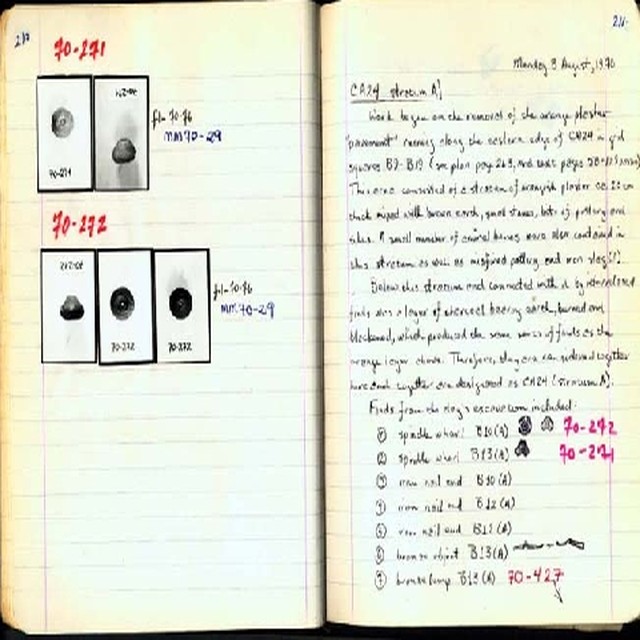 210
70-271
70-271
70-271
fl-70-76
MM70-29
70-272
70-272
70-272
70-272
fl-70-76
MM70-29
211
Monday 3 August, 1970
CA24 stratum A
Work began on the removal of the orange plaster
"pavement" running along the eastern edge of CA24 in grid
squares B9-B19 (see plan page 263, and
This area consisted of a stratum of orangish plaster ca.
thick mixed with brown earth, small stones, bits of pottery and
tiles. A small number of animal bones were also contained in
this stratum as well as misfired pottery and iron slag(?).
Below this stratum and connected with it by
finds was a layer of charcoal bearing earth, burned and
blackened, which produced the same sorts of finds as the
orange layer above. Therefore, they are considered together
here and together are designated as CA24 (stratum A).
Finds from the day's excavation included:
① spindle whorl B10(A) 70-272
② spindle whorl B13(A) 70-271
③ iron nail end B10(A)
④ iron nail end B12(A)
⑤ iron nail end B12(A)
⑥ bronze object B13(A)
⑦ bronze lump B19(A) 70-427